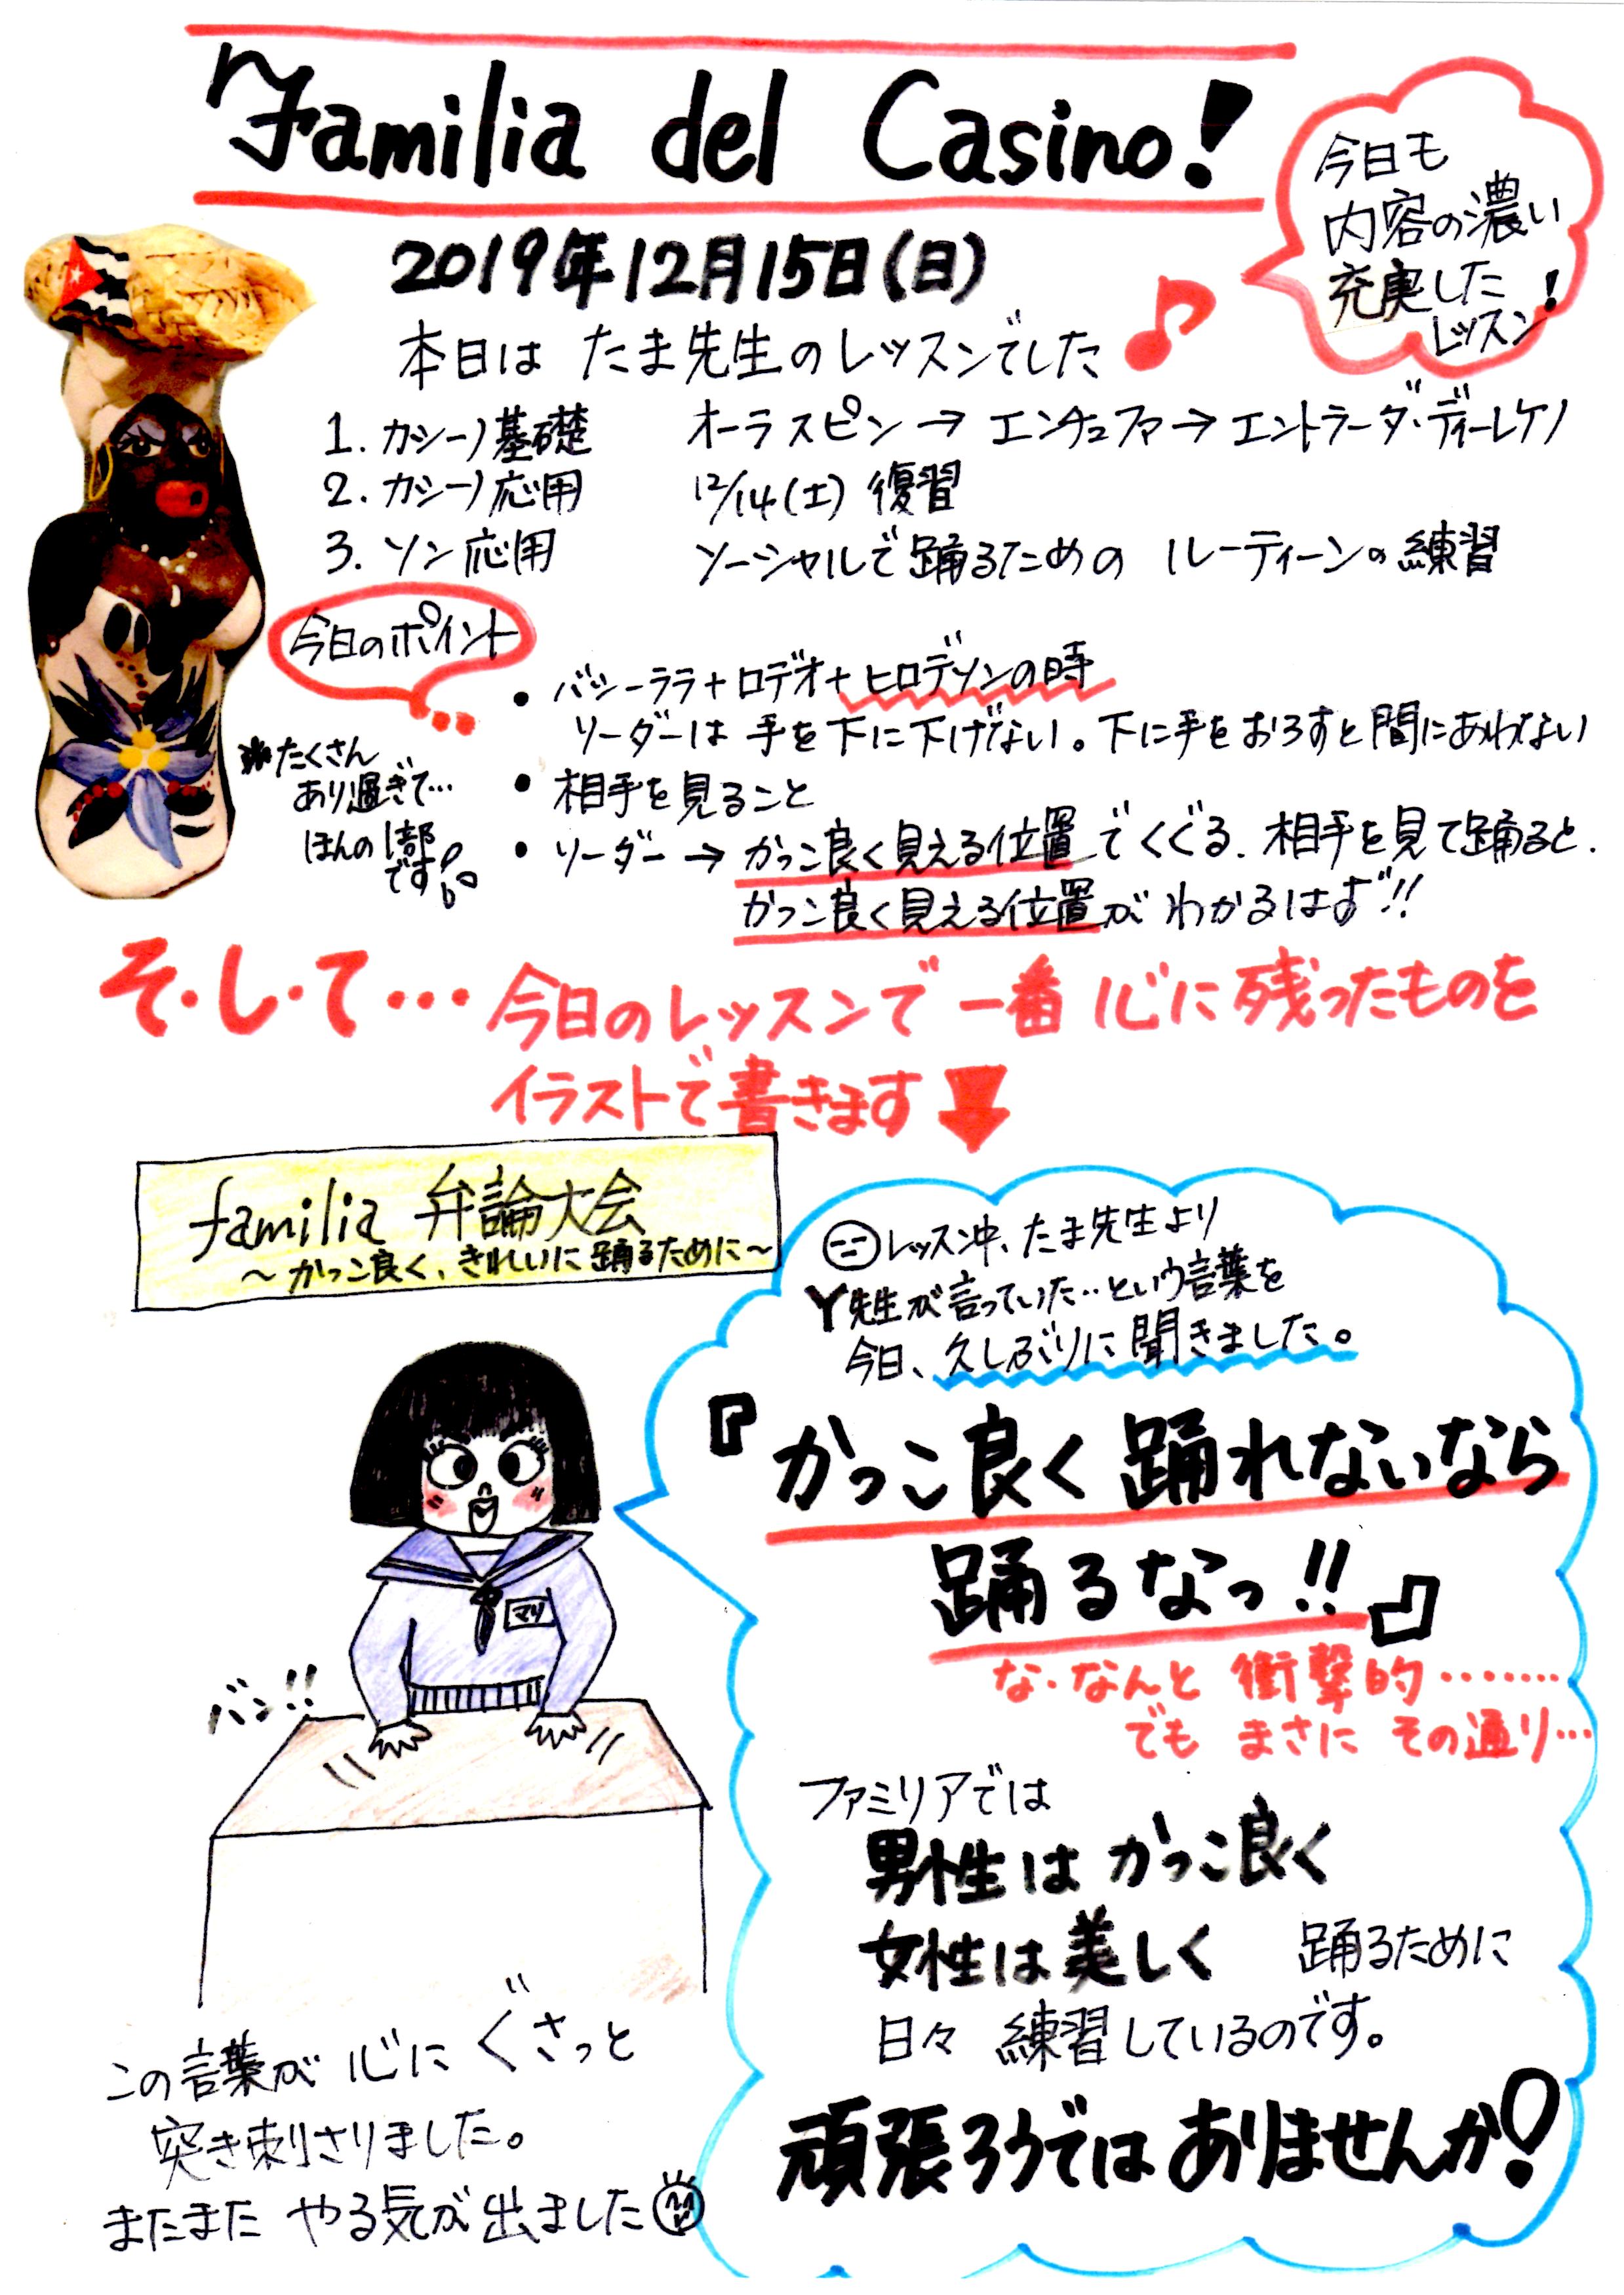 Familia del Casino!
今日も
内容の濃い
充実した
レッスン!
2019年12月15日(日)
本日は たま先生のレッスンでした♪
1. カシーノ基礎 オーラスピン→エンチュファ→エントラーダ・ディーレケノ
2. カシーノ応用 12/14(土) 復習
3. ソン応用 ソーシャルで踊るための ルーティーンの練習
今日のポイント
*たくさん
あり過ぎて…
ほんの1部
です!
• バシーララ+ロデオ+ヒロデソンの時
リーダーは 手を下に下げない。下に手をおろすと間にあわない
• 相手を見ること
• リーダー→かっこ良く見える位置でくぐる. 相手を見て踊ると.
かっこ良く見える位置がわかるはず!!
そ・し・て… 今日のレッスンで一番心に残ったものを
イラストで書きます
familia 弁論大会
～かっこ良く、きれいに踊るために～
レッスン中、たま先生より
Y先生が言っていた…という言葉を
今日、久しぶりに聞きました。
『かっこ良く踊れないなら
踊るなっ!!』
な・なんと 衝撃的………
でも まさに その通り…
マリ
バン!!
ファミリアでは
男性はかっこ良く
女性は美しく 踊るために
日々 練習しているのです。
頑張ろうではありませんか!
この言葉が心にぐさっと
突き刺さりました。
またまた やる気が出ました